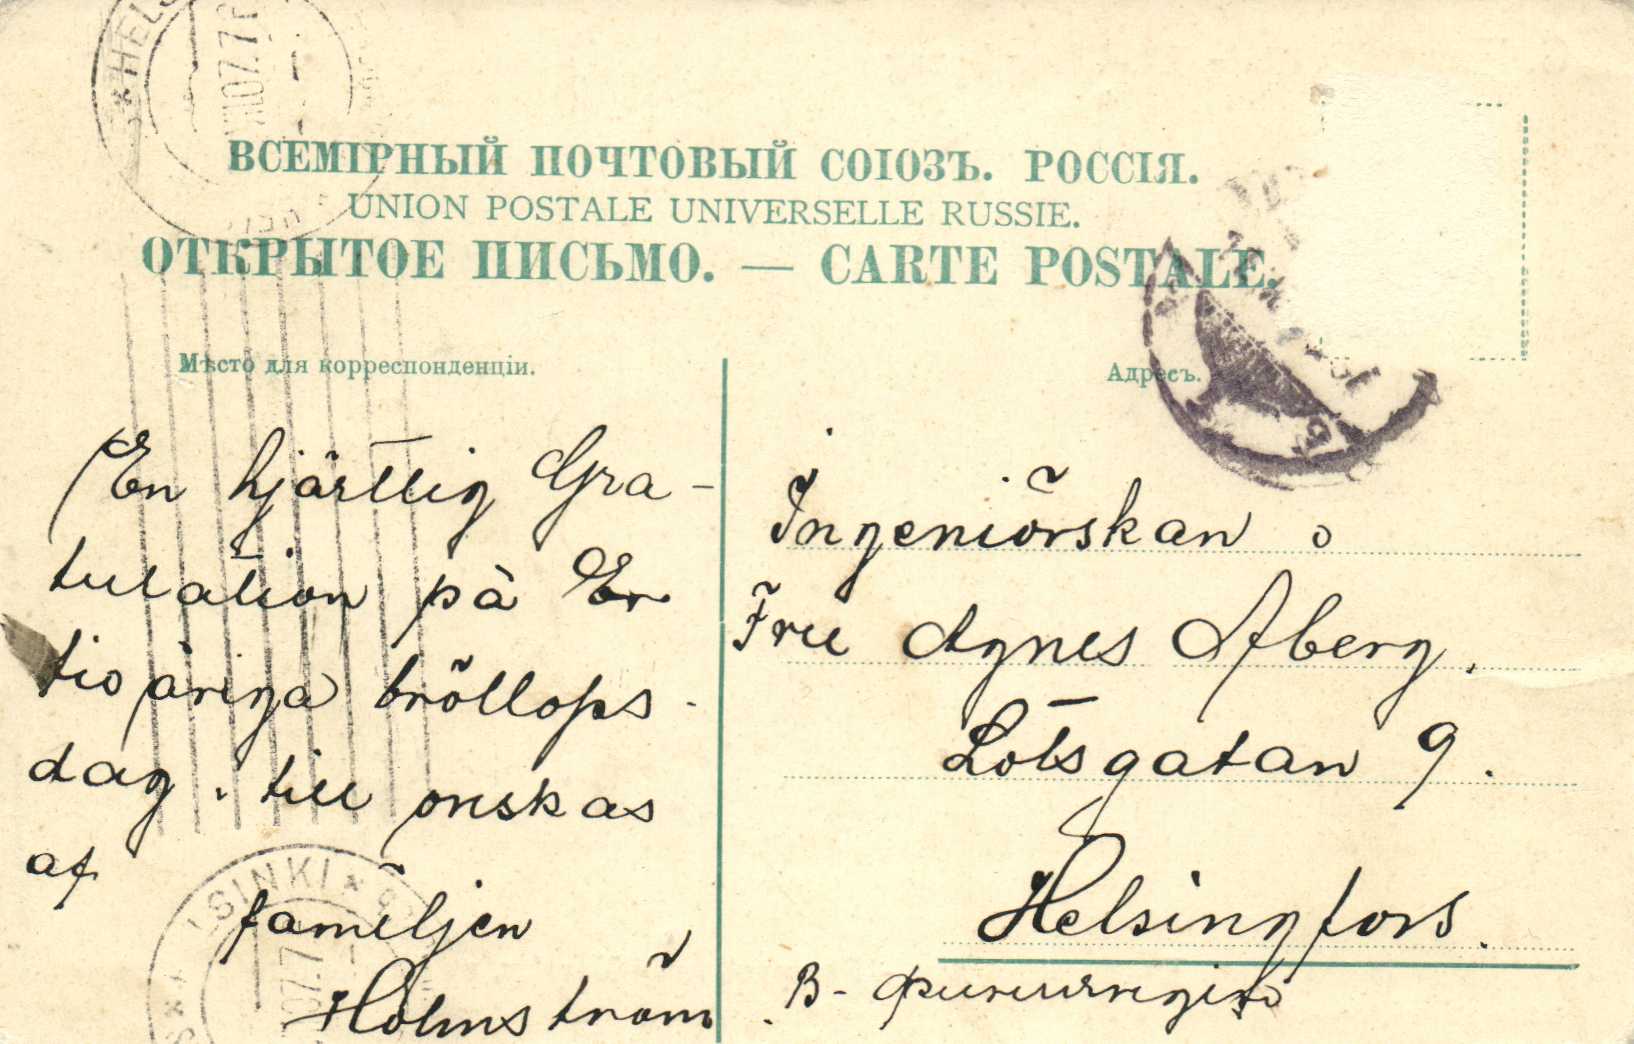 ВСЕМІРНЫЙ ПОЧТОВЫЙ СОЮЗЪ. РОССІЯ.
UNION POSTALE UNIVERSELLE RUSSIE.
ОТКРЫТОЕ ПИСЬМО. — CARTE POSTALE.
Мѣсто для корреспонденціи.
En hjärtlig Gra-
tulation på Er
tioåriga bröllops-
dag. till önskas
af
familjen
Holmström
Адресъ.
Ingeniörskan
Fru Agnes Åberg.
Lotsgatan 9.
Helsingfors.
HELS
07.7
LSINKI
07.7